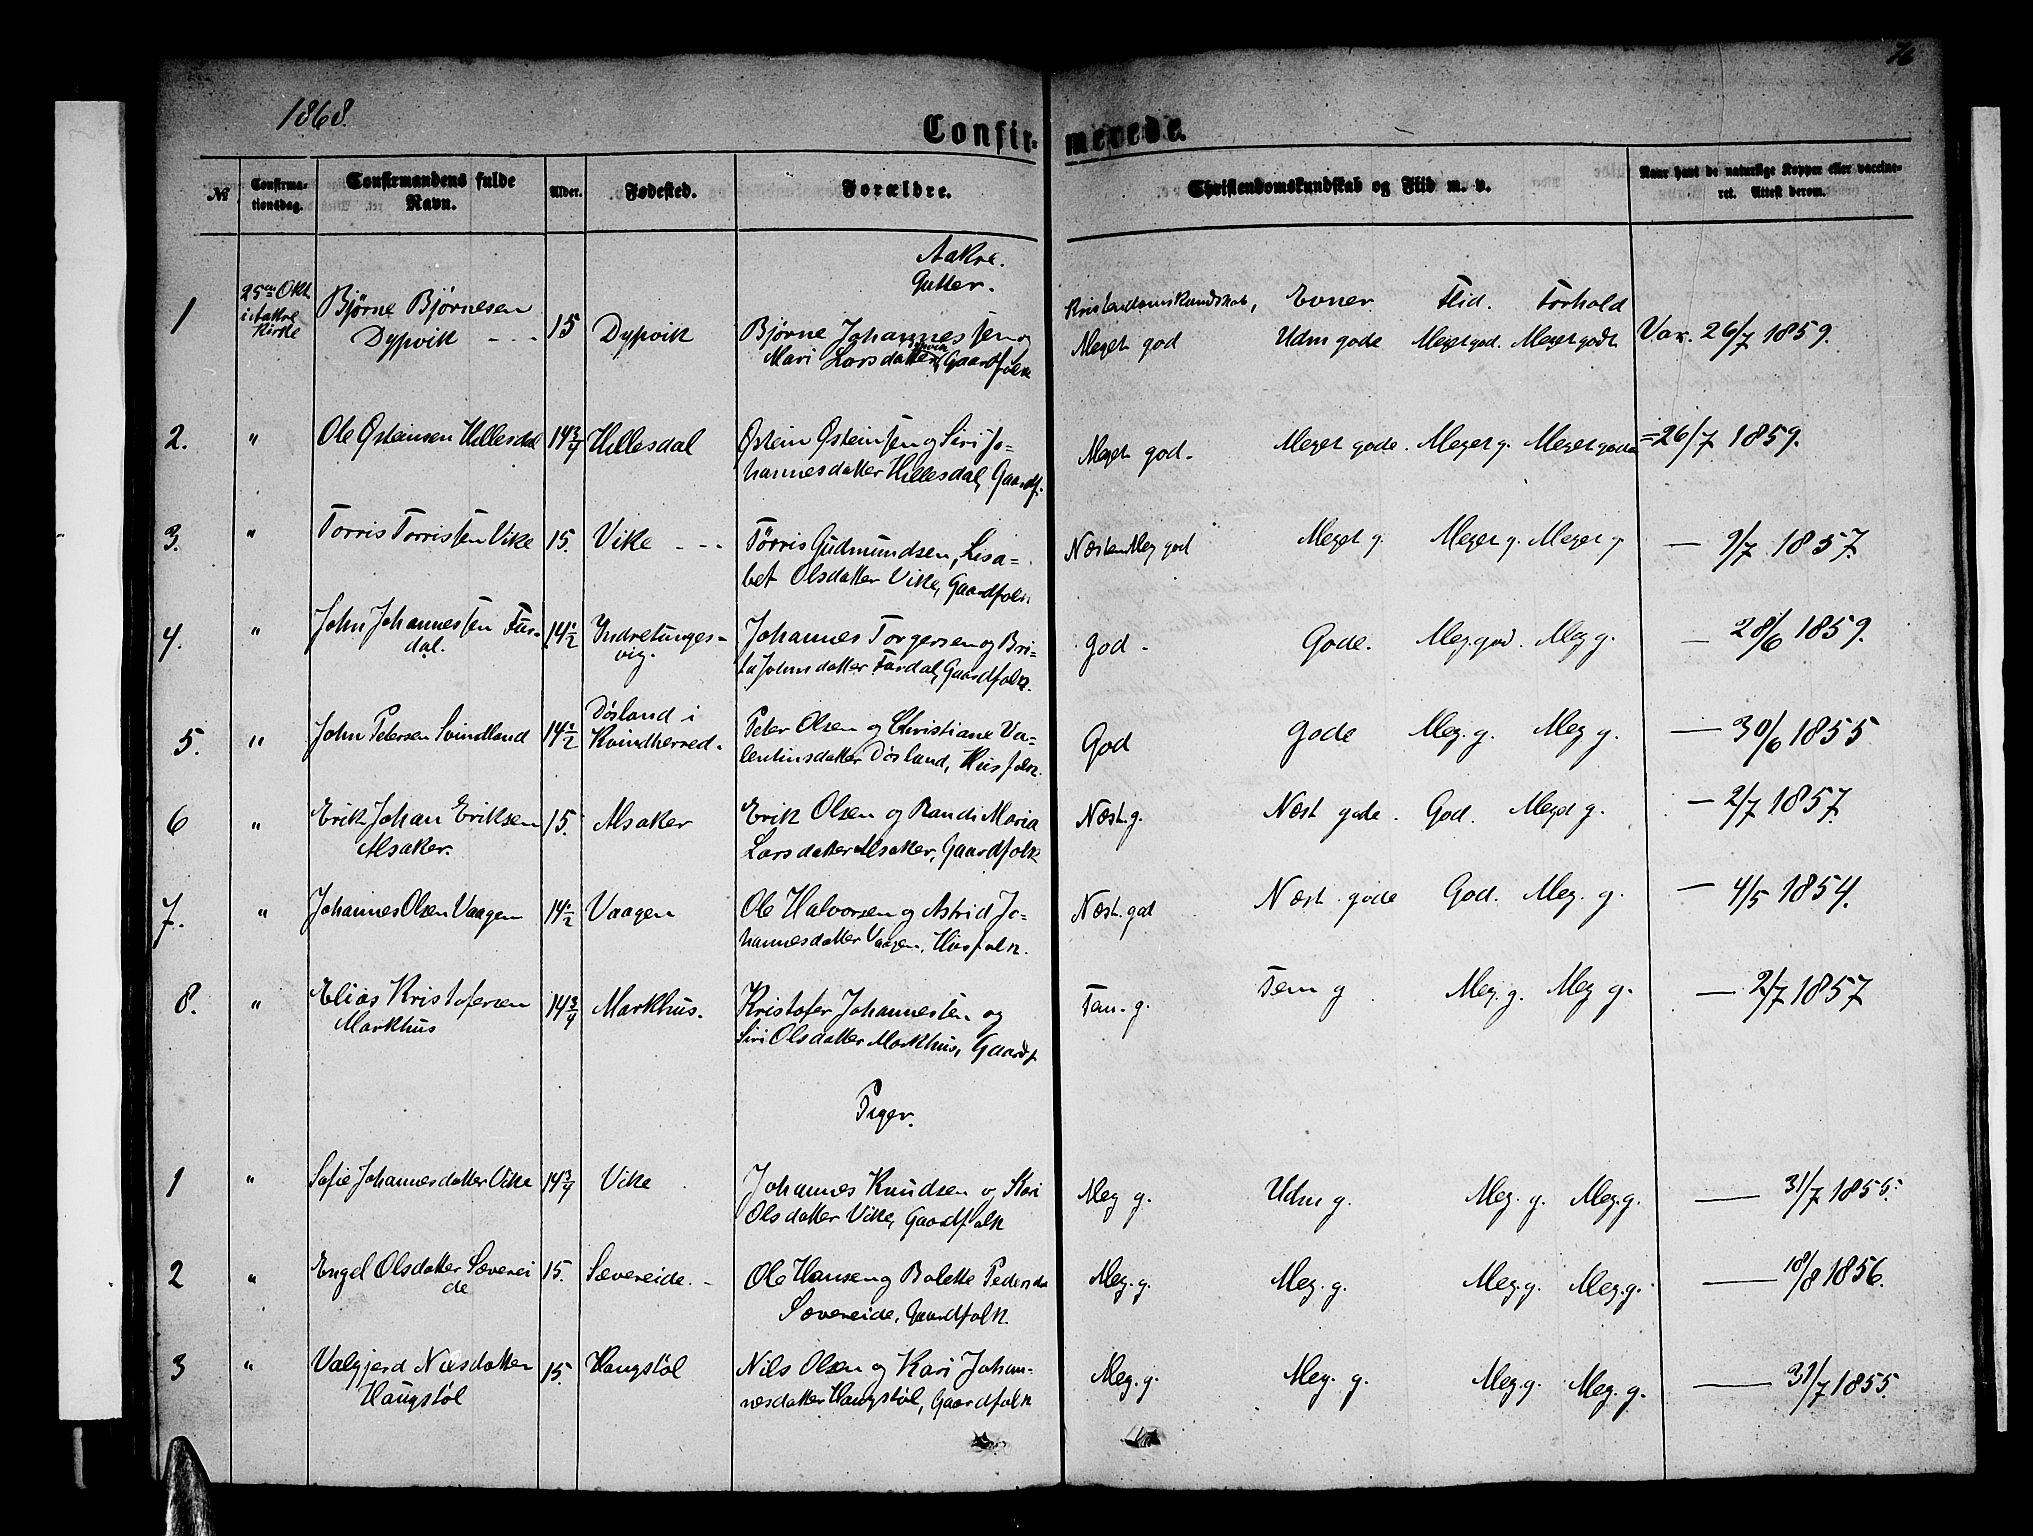 76
1868.
Confir- merede.
№ Confirmationsdag. Confirmandens fulde Navn. Alder. Fødested. Forældre. Christendomskundskab og Flid m. v. Naar havt de naturlige Kopper eller vaccineret. Attest derom.
Aakre.
Gutter.
Kristendomskundskab, Evner. Flid. Forhold
1 25de Okt. i Aakre Kirke Bjørne Bjørnesen 15 Dypvik Bjørne Johannessen og Meget god Udm gode Meget god. Meget godt Vax. 26/7 1859.
Dypvik - - - Mari Larsdatter Dypvik Gaardfolk
2. " Ole Østensen Hillesdal 14 3/4 Hillesdal Østein Østeinsen og Siri Jo- Meget god. Meget gode. Meget g. Meget godt = 26/7 1859.
hannesdatter Hillesdal, Gaardf.
3. " Torris Torrissen Vike 15. Vike - - - Törris Gudmundsen, Lisa- Næsten Meg god Meget g. Meget g. Meget g — 9/7 1857.
bet Olsdatter Vike, Gaardfolk
4. " John Johannessen Fus- 14 1/2 Indretunges- Johannes Torgersen og Bri- god. Gode. Meg. god. Meg g. — 28/6 1859.
dal. vig. ta Johnsdatter Fusdal, Gaardfolk.
5. " John Petersen Svindland 14 1/2 Døsland i Peter Olsen og Christiane Va- God gode Meg. g. Meg g. — 30/6 1855
Kvindherred. lentinsdatter Døsland, Husfolk.
6 " Erik Johan Eriksen 15. Alsaker Erik Olsen og Randi Maria Næst. g. Næst gode. God. Meget g. — 2/7 1857.
Alsaker. Larsdatter Alsaker, Gaardfolk
7. " Johannes Olsen Vaagen 14 1/2 Vaagen Ole Halvorsen og Astrid Jo- Næst. god Næst. gode God. Meg. g. — 4/5 1854.
hannesdatter Vaagen, Husfolk.
8. " Elias Kristofersen 14 3/4 Markhus. Kristofer Johannessen og Tem. g. Tem g Meg. g. Meg g. — 2/7 1857
Markhus Siri Olsdatter Markhus, Gaardf
Piger.
1 " Sofie Johannesdatter Vike 14 3/4 Vike Johannes Knudsen og Kari Meg g. Udm g. Meg. g. Meg. g. — 31/7 1855.
Olsdatter Vike, Gaardfolk
2 " Engel Olsdatter Sæverei 15. Sævereide. - Ole Hansen og Bolette Pedersda Meg. g. Meg. g. Meg. g. Meg. g. — 18/8 1856.
de Sævereide, Gaardfolk
3 " Valgjerd Nilsdatter 15. Haugstøl Nils Olsen og Kari Johan- Meg. g. Meg. g. Meg. g. Meg. g. — 31/7 1855.
Haugstøl nesdatter Haugstøl, Gaardfolk